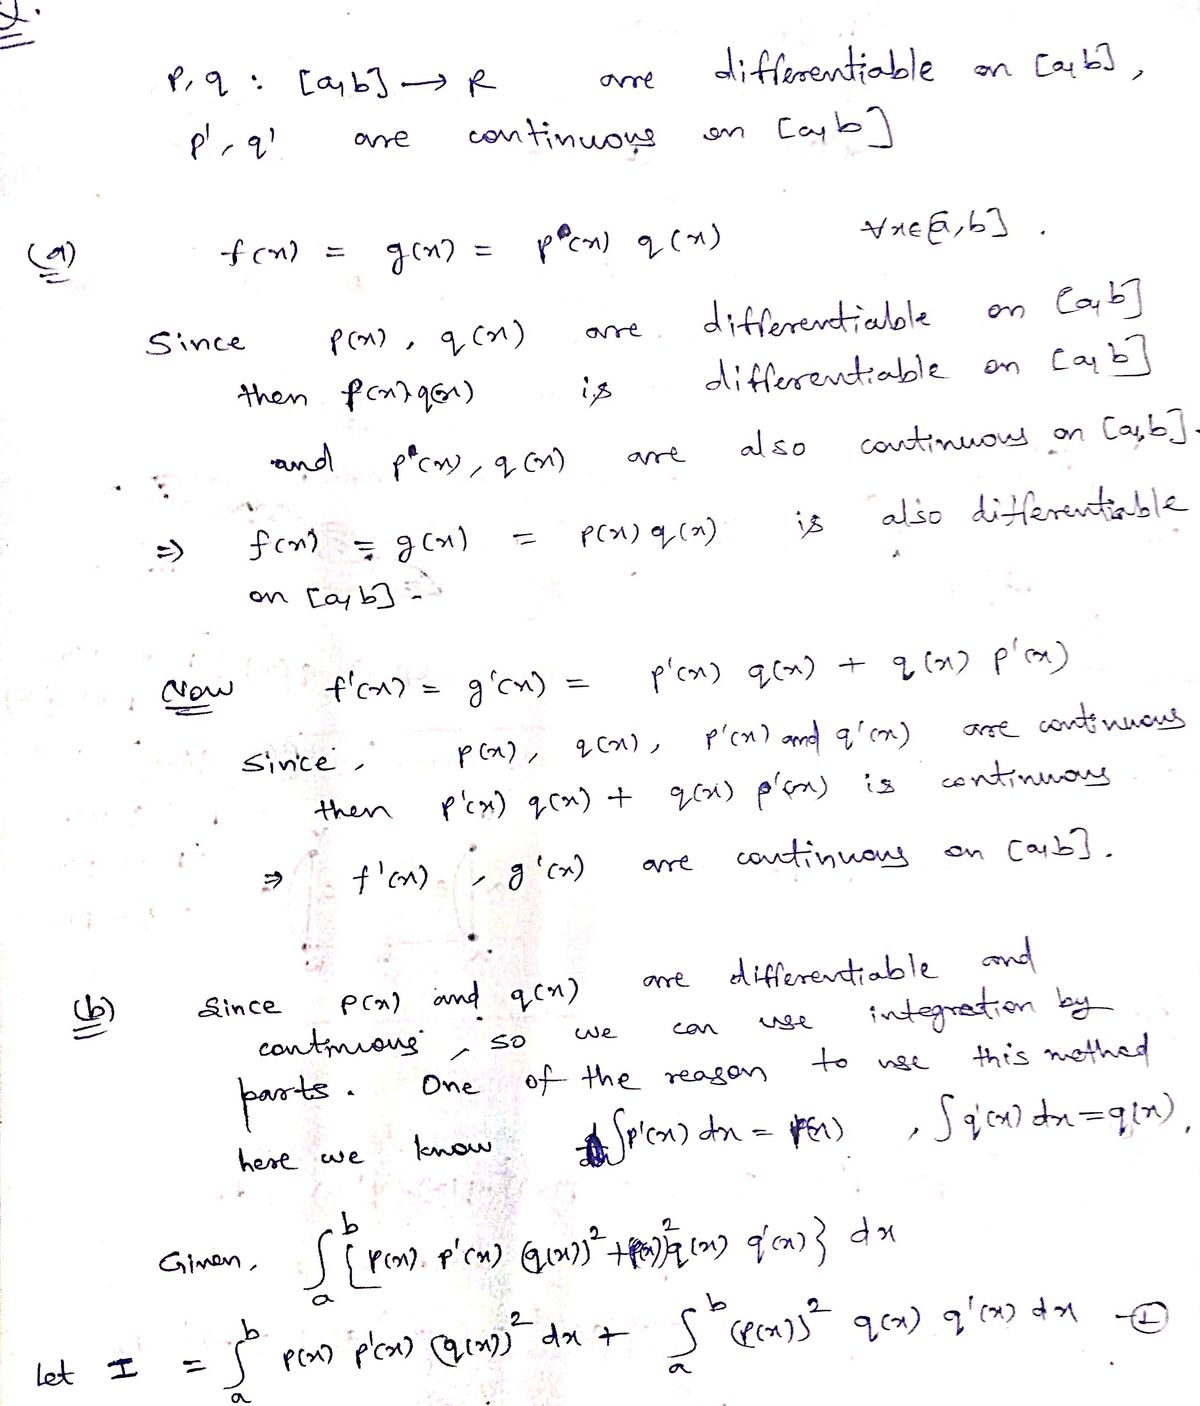 p, q : [a,b] → R are differentiable on [a,b],
p', q' are continuous on [a,b]
(a) f(x) = g(x) = p(x) q(x) ∀x∈[a,b].
Since p(x), q(x) are differentiable on [a,b]
then p(x)q(x) is differentiable on [a,b]
and p(x), q(x) are also continuous on [a,b].
⇒ f(x) = g(x) = p(x) q(x) is also differentiable
on [a,b].
Now f'(x) = g'(x) = p'(x) q(x) + q(x) p'(x)
Since, p(x), q(x), p'(x) and q'(x) are continuous
then p'(x) q(x) + q(x) p'(x) is continuous
⇒ f'(x), g'(x) are continuous on [a,b].
(b) Since p(x) and q(x) are differentiable and
continuous, so we can use integration by
parts. One of the reason to use this method
here we know ∫p'(x) dx = p(x), ∫q'(x) dx = q(x).
Given, ∫_a^b {p(x). p'(x) (q(x))² + (p(x))² q(x) q'(x)} dx
Let I = ∫_a^b p(x) p'(x) (q(x))² dx + ∫_a^b (p(x))² q(x) q'(x) dx —①